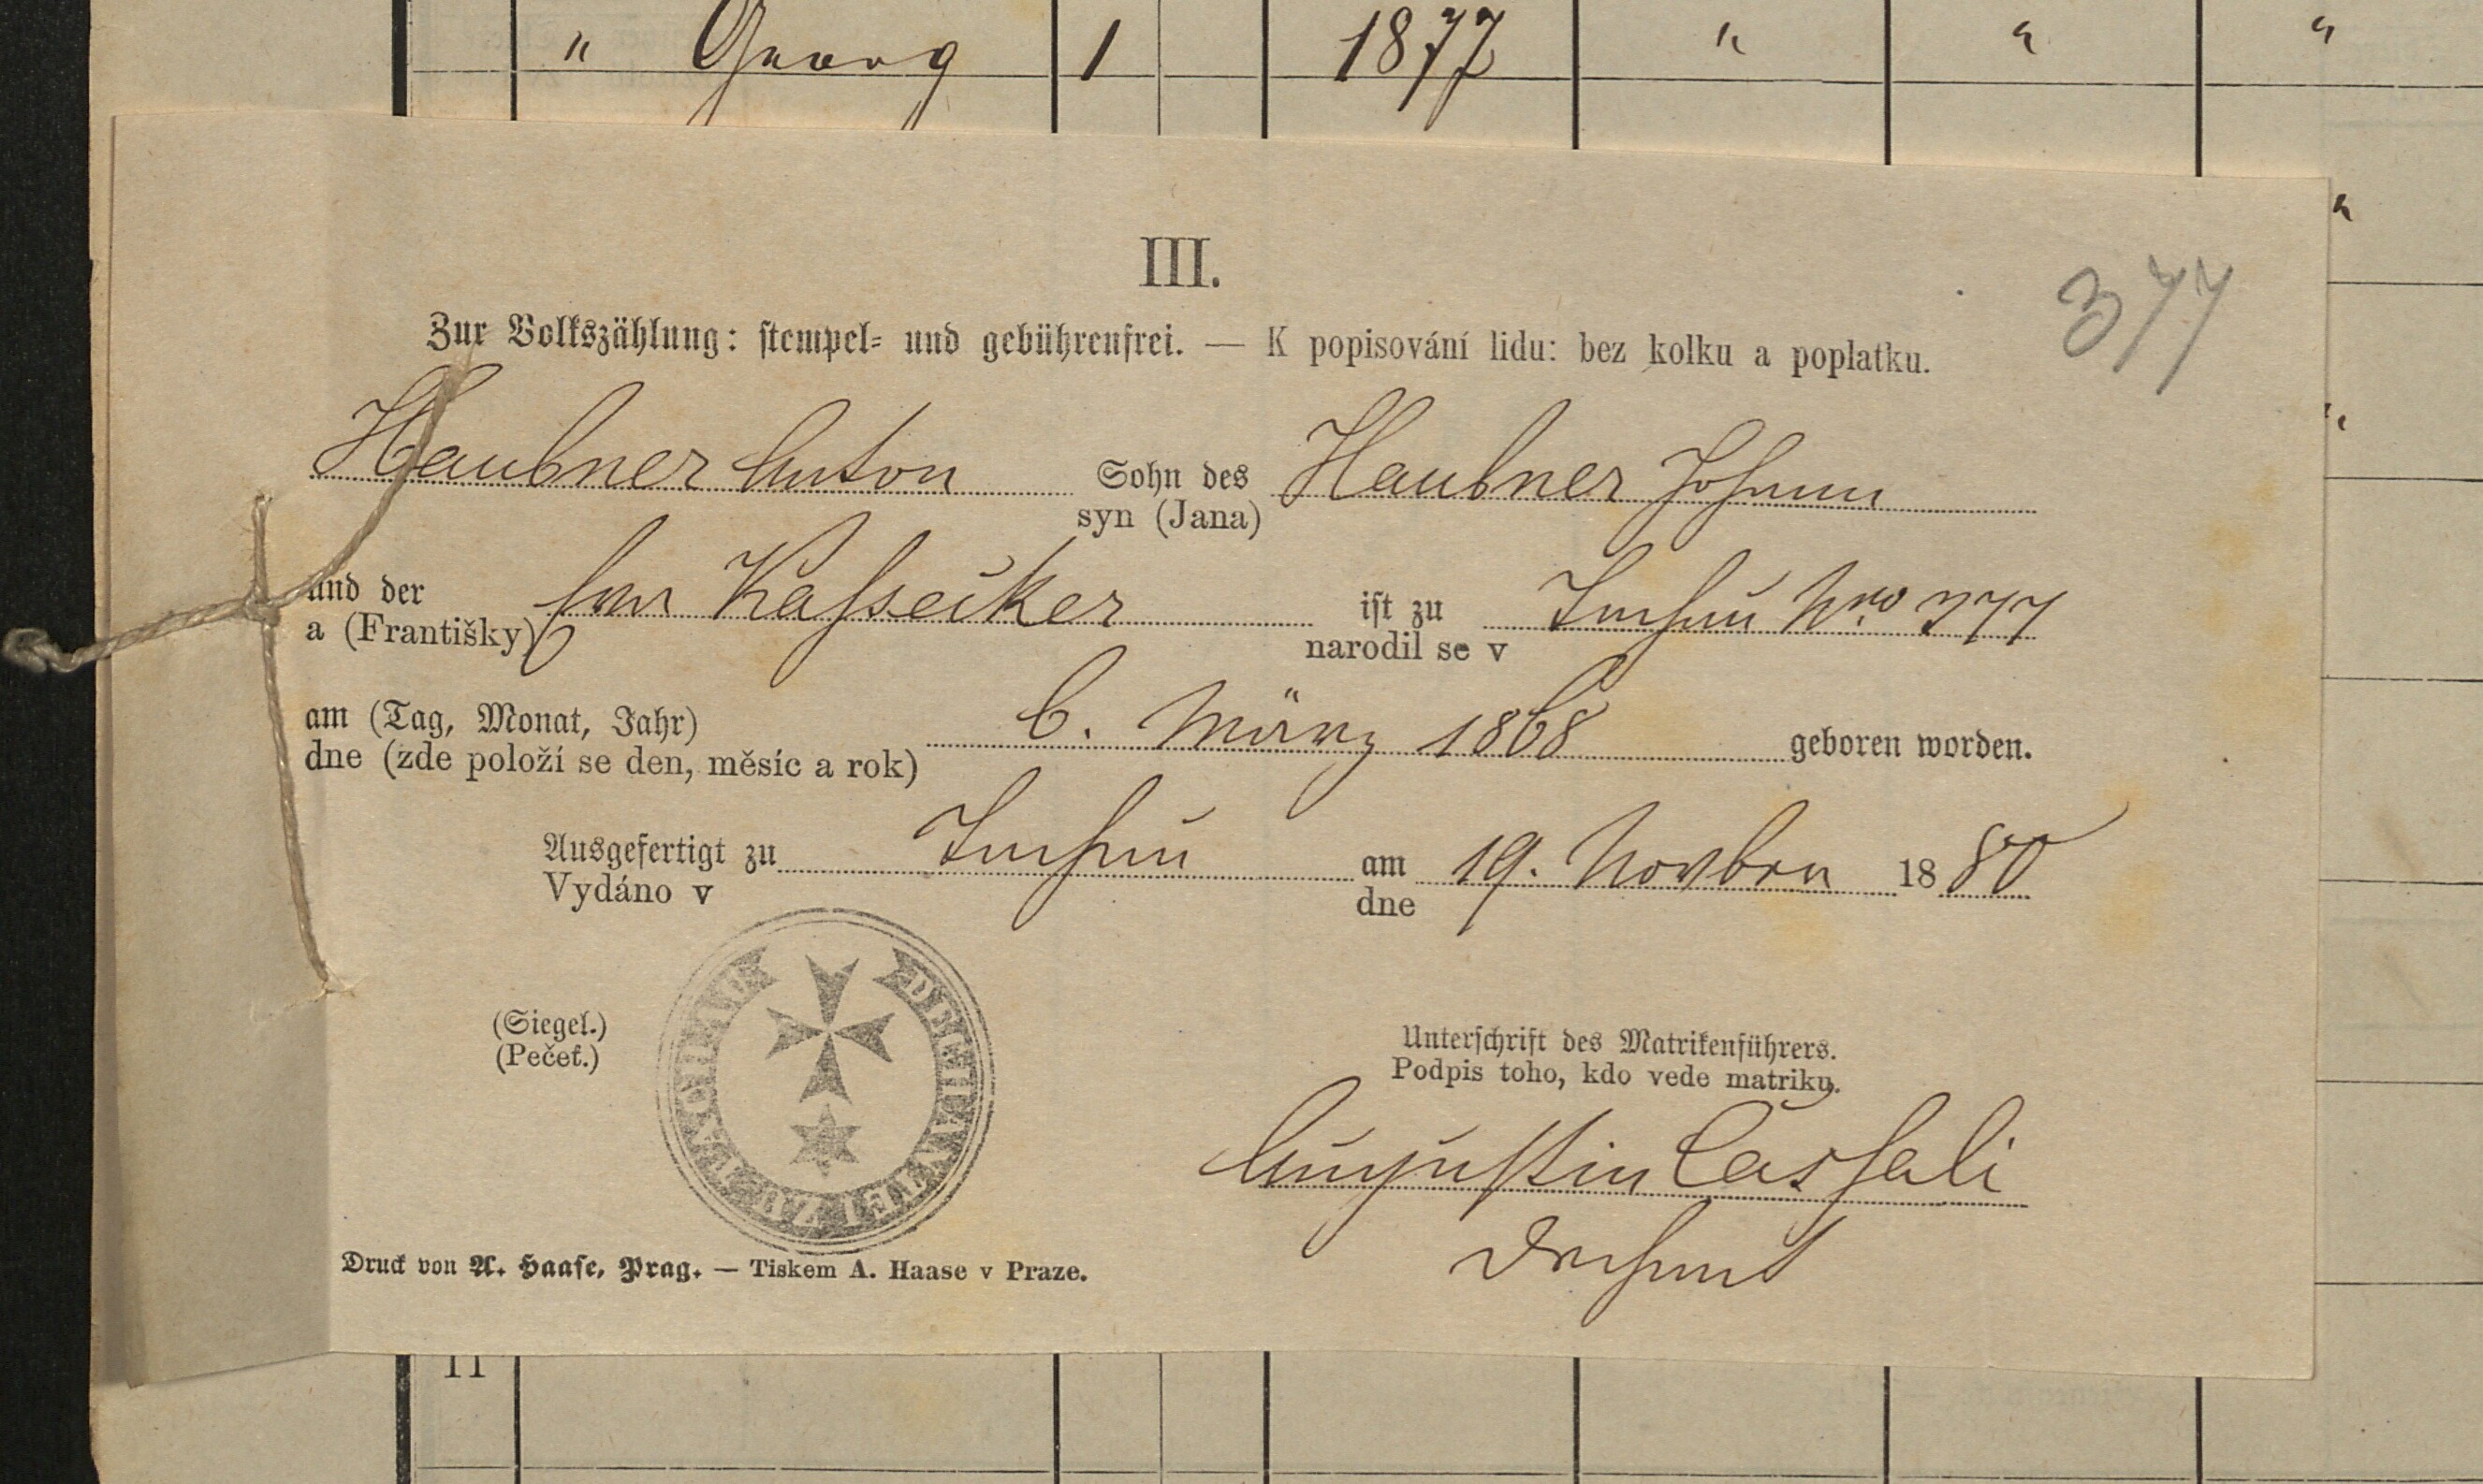 " Georg 1 1877 " " "
III.
377
Zur Volkszählung: stempel- und gebührenfrei. — K popisování lidu: bez kolku a poplatku.
Haubner Anton Sohn des Haubner Johann
syn (Jana)
und der Eva Kassecker ist zu Nro 377
a (Františky) narodil se v
am (Tag, Monat, Jahr) 6. März 1868 geboren worden.
dne (zde položí se den, měsíc a rok)
Ausgefertigt zu am 19. Novber 1880
Vydáno v dne
DECHANTEI ZU
(Siegel.)
(Pečeť.)
Unterschrift des Matrikenführers.
Podpis toho, kdo vede matriku.
Augustin Cassali
Dechant
Druck von A. Haase, Prag. — Tiskem A. Haase v Praze.
11